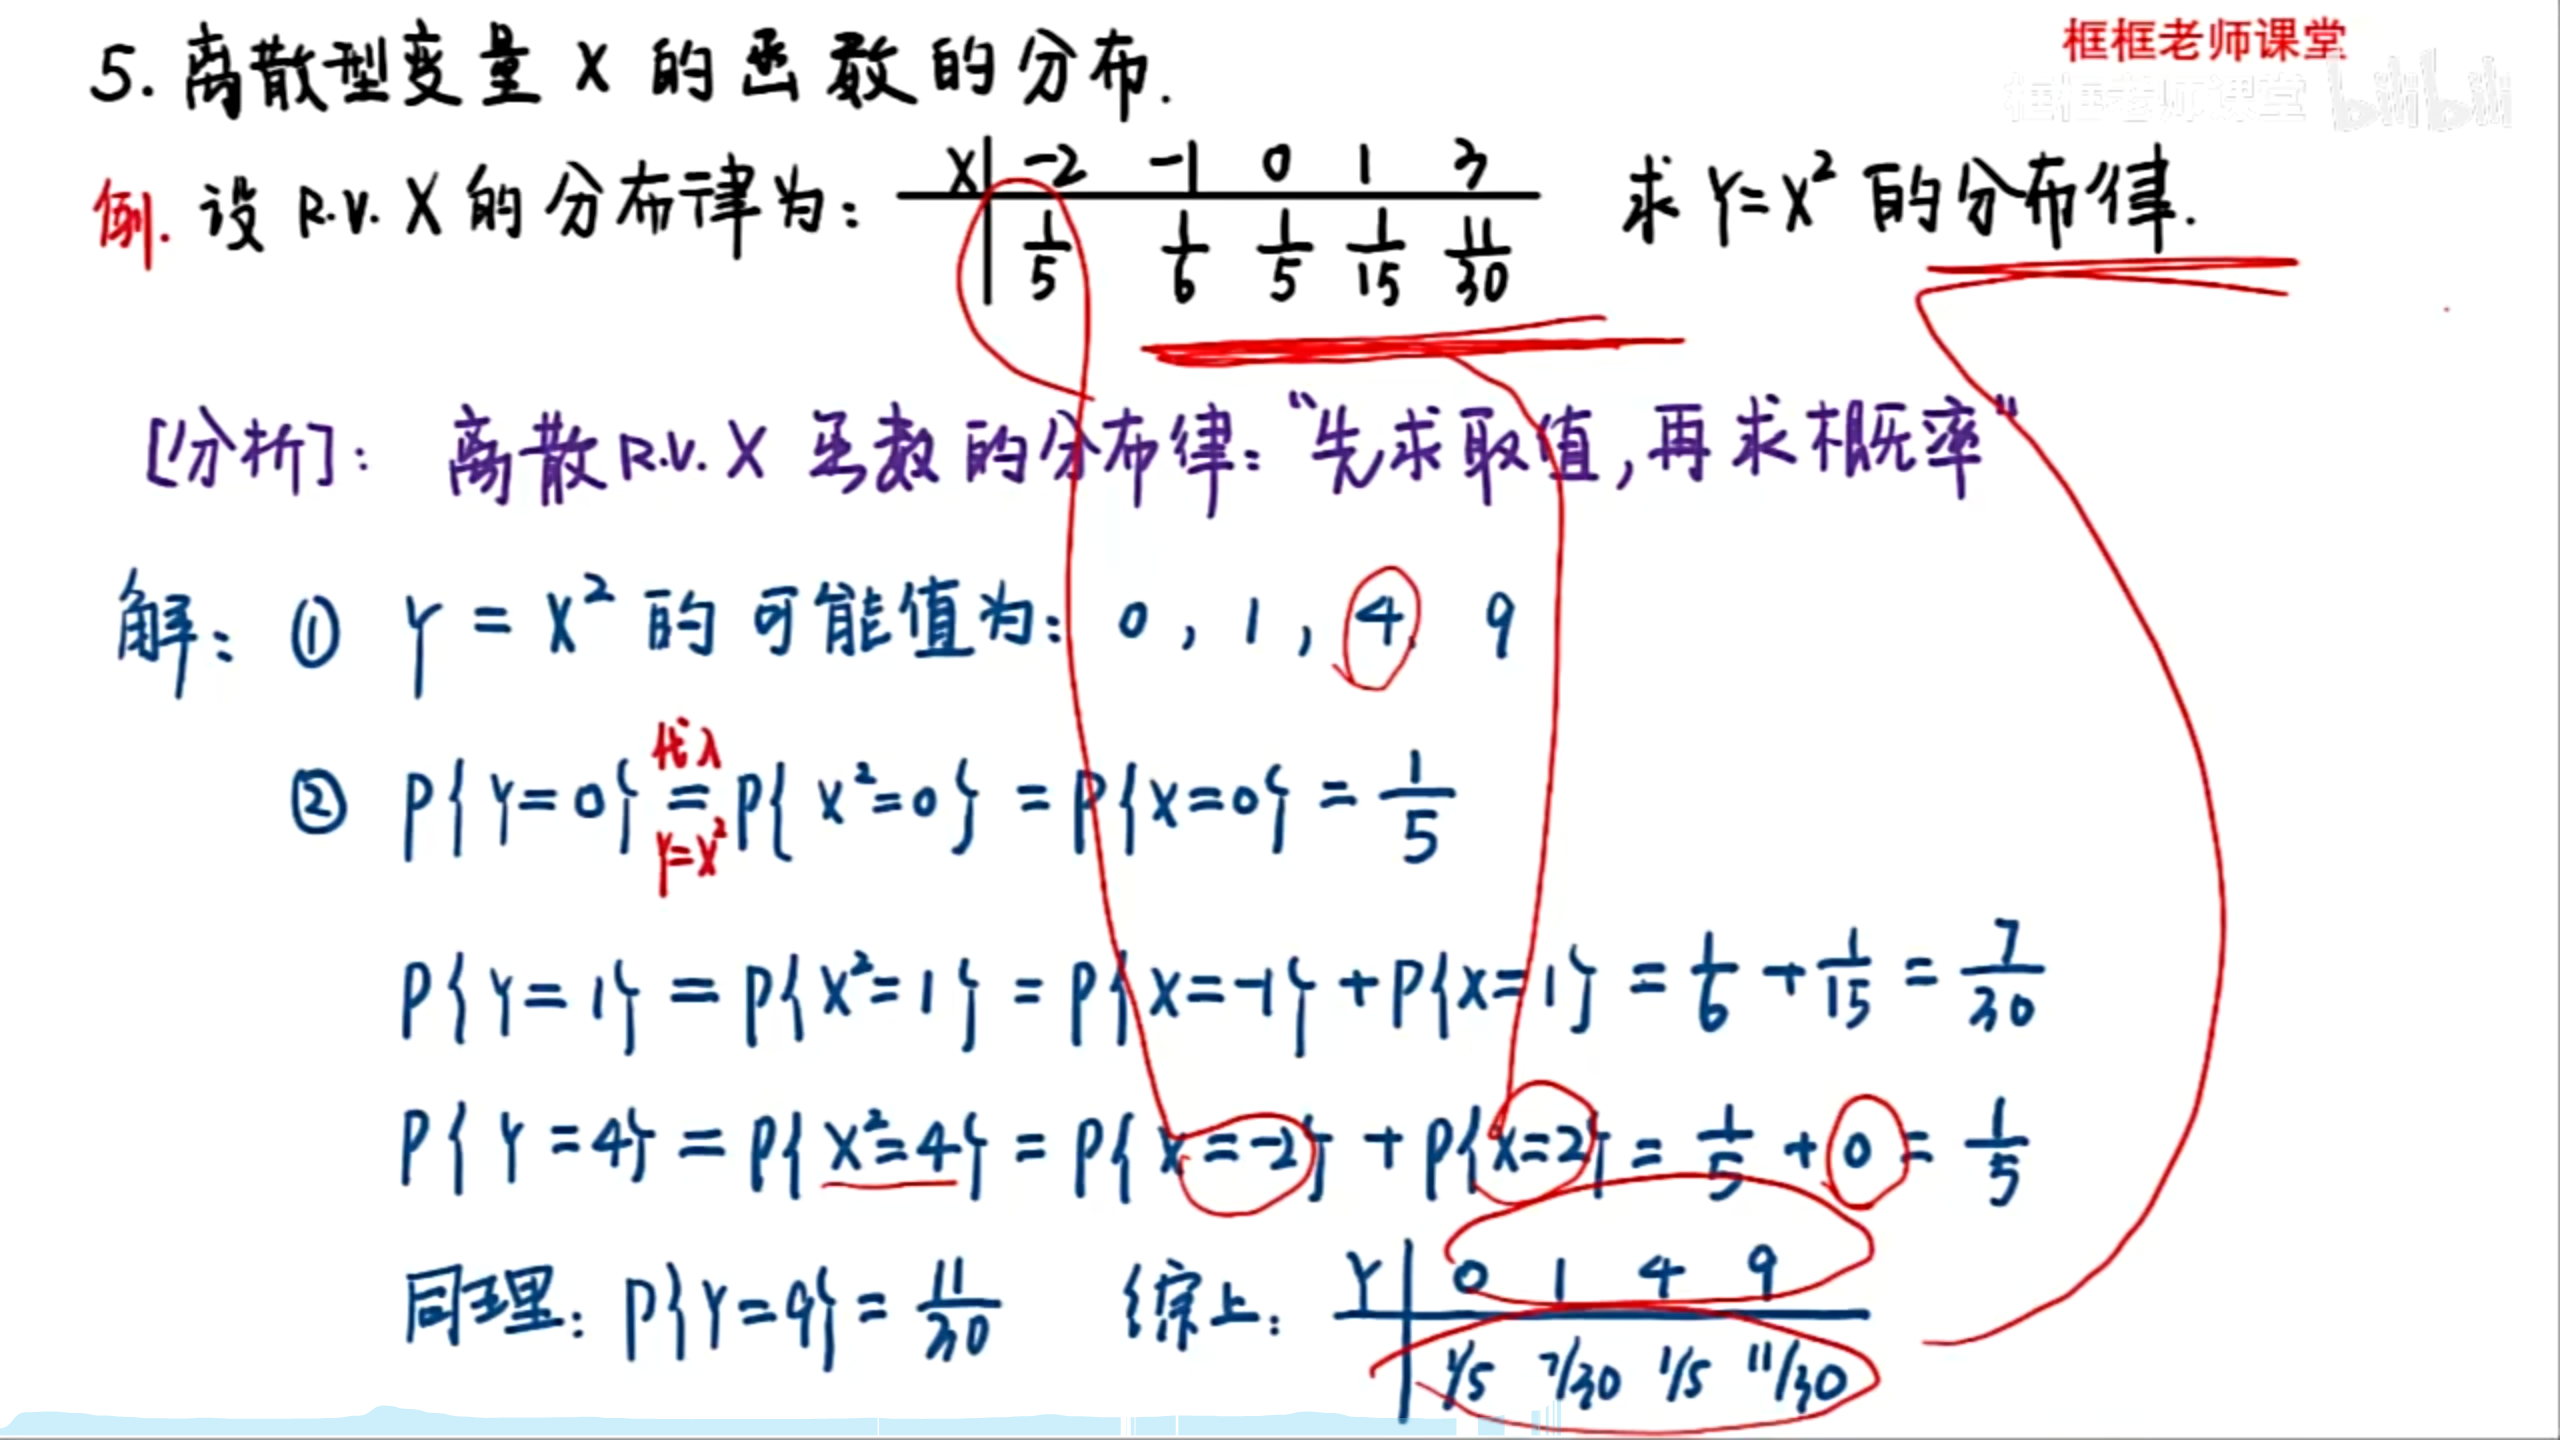 框框老师课堂
框框老师课堂 bilibili
5. 离散型变量 X 的函数的分布.
例. 设 R.V. X 的分布律为: X -2 -1 0 1 3 求 Y=X² 的分布律.
1/5 1/6 1/5 1/15 11/30
[分析]: 离散R.V. X 函数的分布律: “先求取值, 再求概率”
解: ① Y = X² 的可能值为: 0 , 1 , 4, 9
代入
② P{Y=0} = P{X²=0} = P{X=0} = 1/5
Y=X²
P{Y=1} = P{X²=1} = P{X=-1} + P{X=1} = 1/6 + 1/15 = 7/30
P{Y=4} = P{X²=4} = P{X=-2} + P{X=2} = 1/5 + 0 = 1/5
同理: P{Y=9} = 11/30 综上: Y 0 1 4 9
1/5 7/30 1/5 11/30